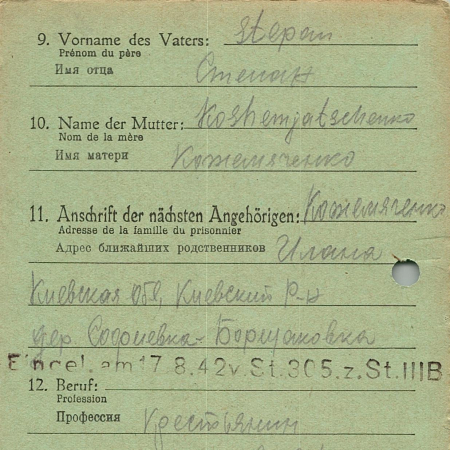 9. Vorname des Vaters: Stepan
Prénom du père
Имя отца Степан
10. Name der Mutter: Koshemjatschenko
Nom de la mère
Имя матери Кожемяченко
11. Anschrift der nächsten Angehörigen: Кожемяченко
Adresse de la famille du prisonnier
Адрес ближайших родственников Илана
Киевская обл, Киевский р-н
дер. Софиевка-Борщаковка
Eingel. am 17.8.42 v. St. 305. z. St. IIIB
12. Beruf:
Profession
Профессия Крестьянин